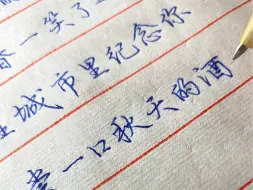 一笑了
城市里纪念你
一口秋天的酒